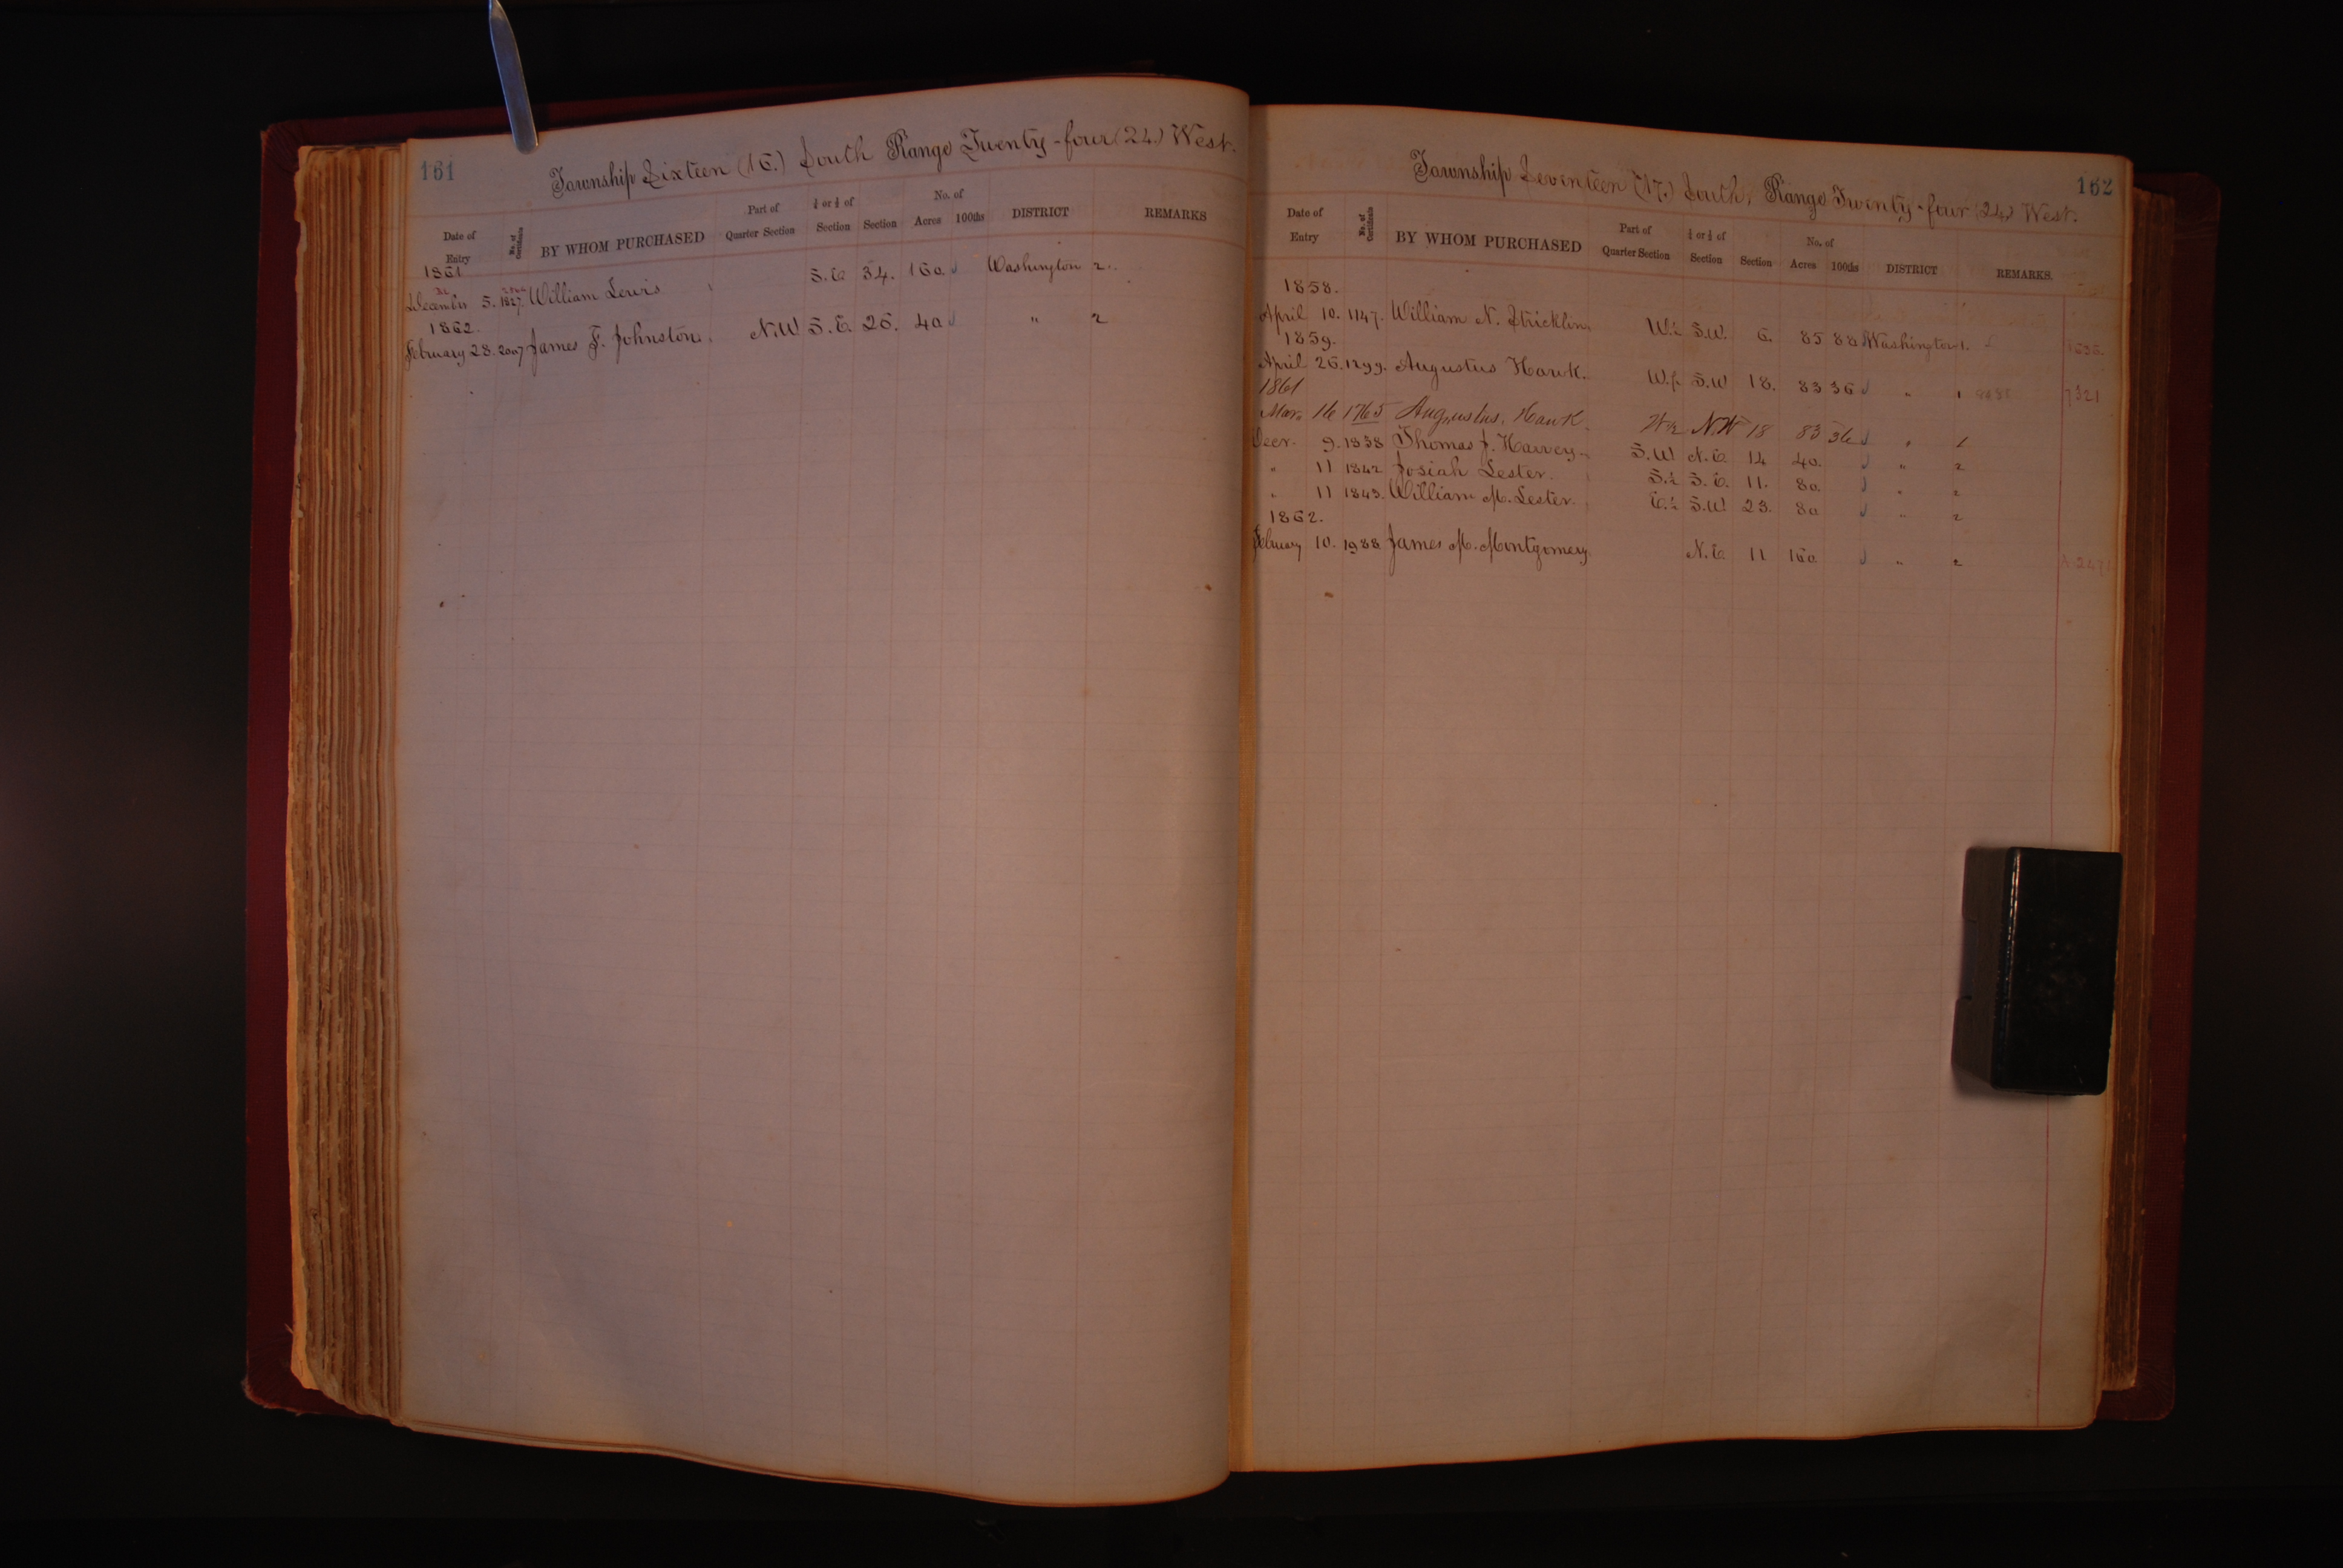 161
Township Sixteen (16.) South Range Twenty-four (24) West.
Date of Entry No. of Certificate BY WHOM PURCHASED Part of Quarter Section ¼ or ½ of Section Section No. of Acres 100ths DISTRICT REMARKS
1861
December 5. 1827. William Lewis S.E. 34. 160. Washington 2.
1862.
February 28. 2007 James F. Johnston. N.W S.E. 26. 40 " 2
162
Township Seventeen (17.) South, Range Twenty-four (24) West.
Date of Entry No. of Certificate BY WHOM PURCHASED Part of Quarter Section ¼ or ½ of Section Section No. of Acres 100ths DISTRICT REMARKS.
1858.
April 10. 1147. William N. Stricklin. W.½ S.W. 6. 85 88 Washington 1.
1859.
April 26. 1299. Augustus Hawk. W.½ S.W 18. 83 36 " 1 7321
1861
Mar. 16 1765 Augustus. Hawk. W½ N.W 18 83 36 " 1
Decr. 9. 1838 Thomas J. Harvey. S.W. N.E. 14 40. " 2
" 11 1842 Josiah Lester. S.½ S.E. 11. 80. " 2
" 11 1843. William M. Lester. E.½ S.W. 23. 80 " 2
1862.
February 10. 1988 James M. Montgomery. N.E. 11 160 " 2